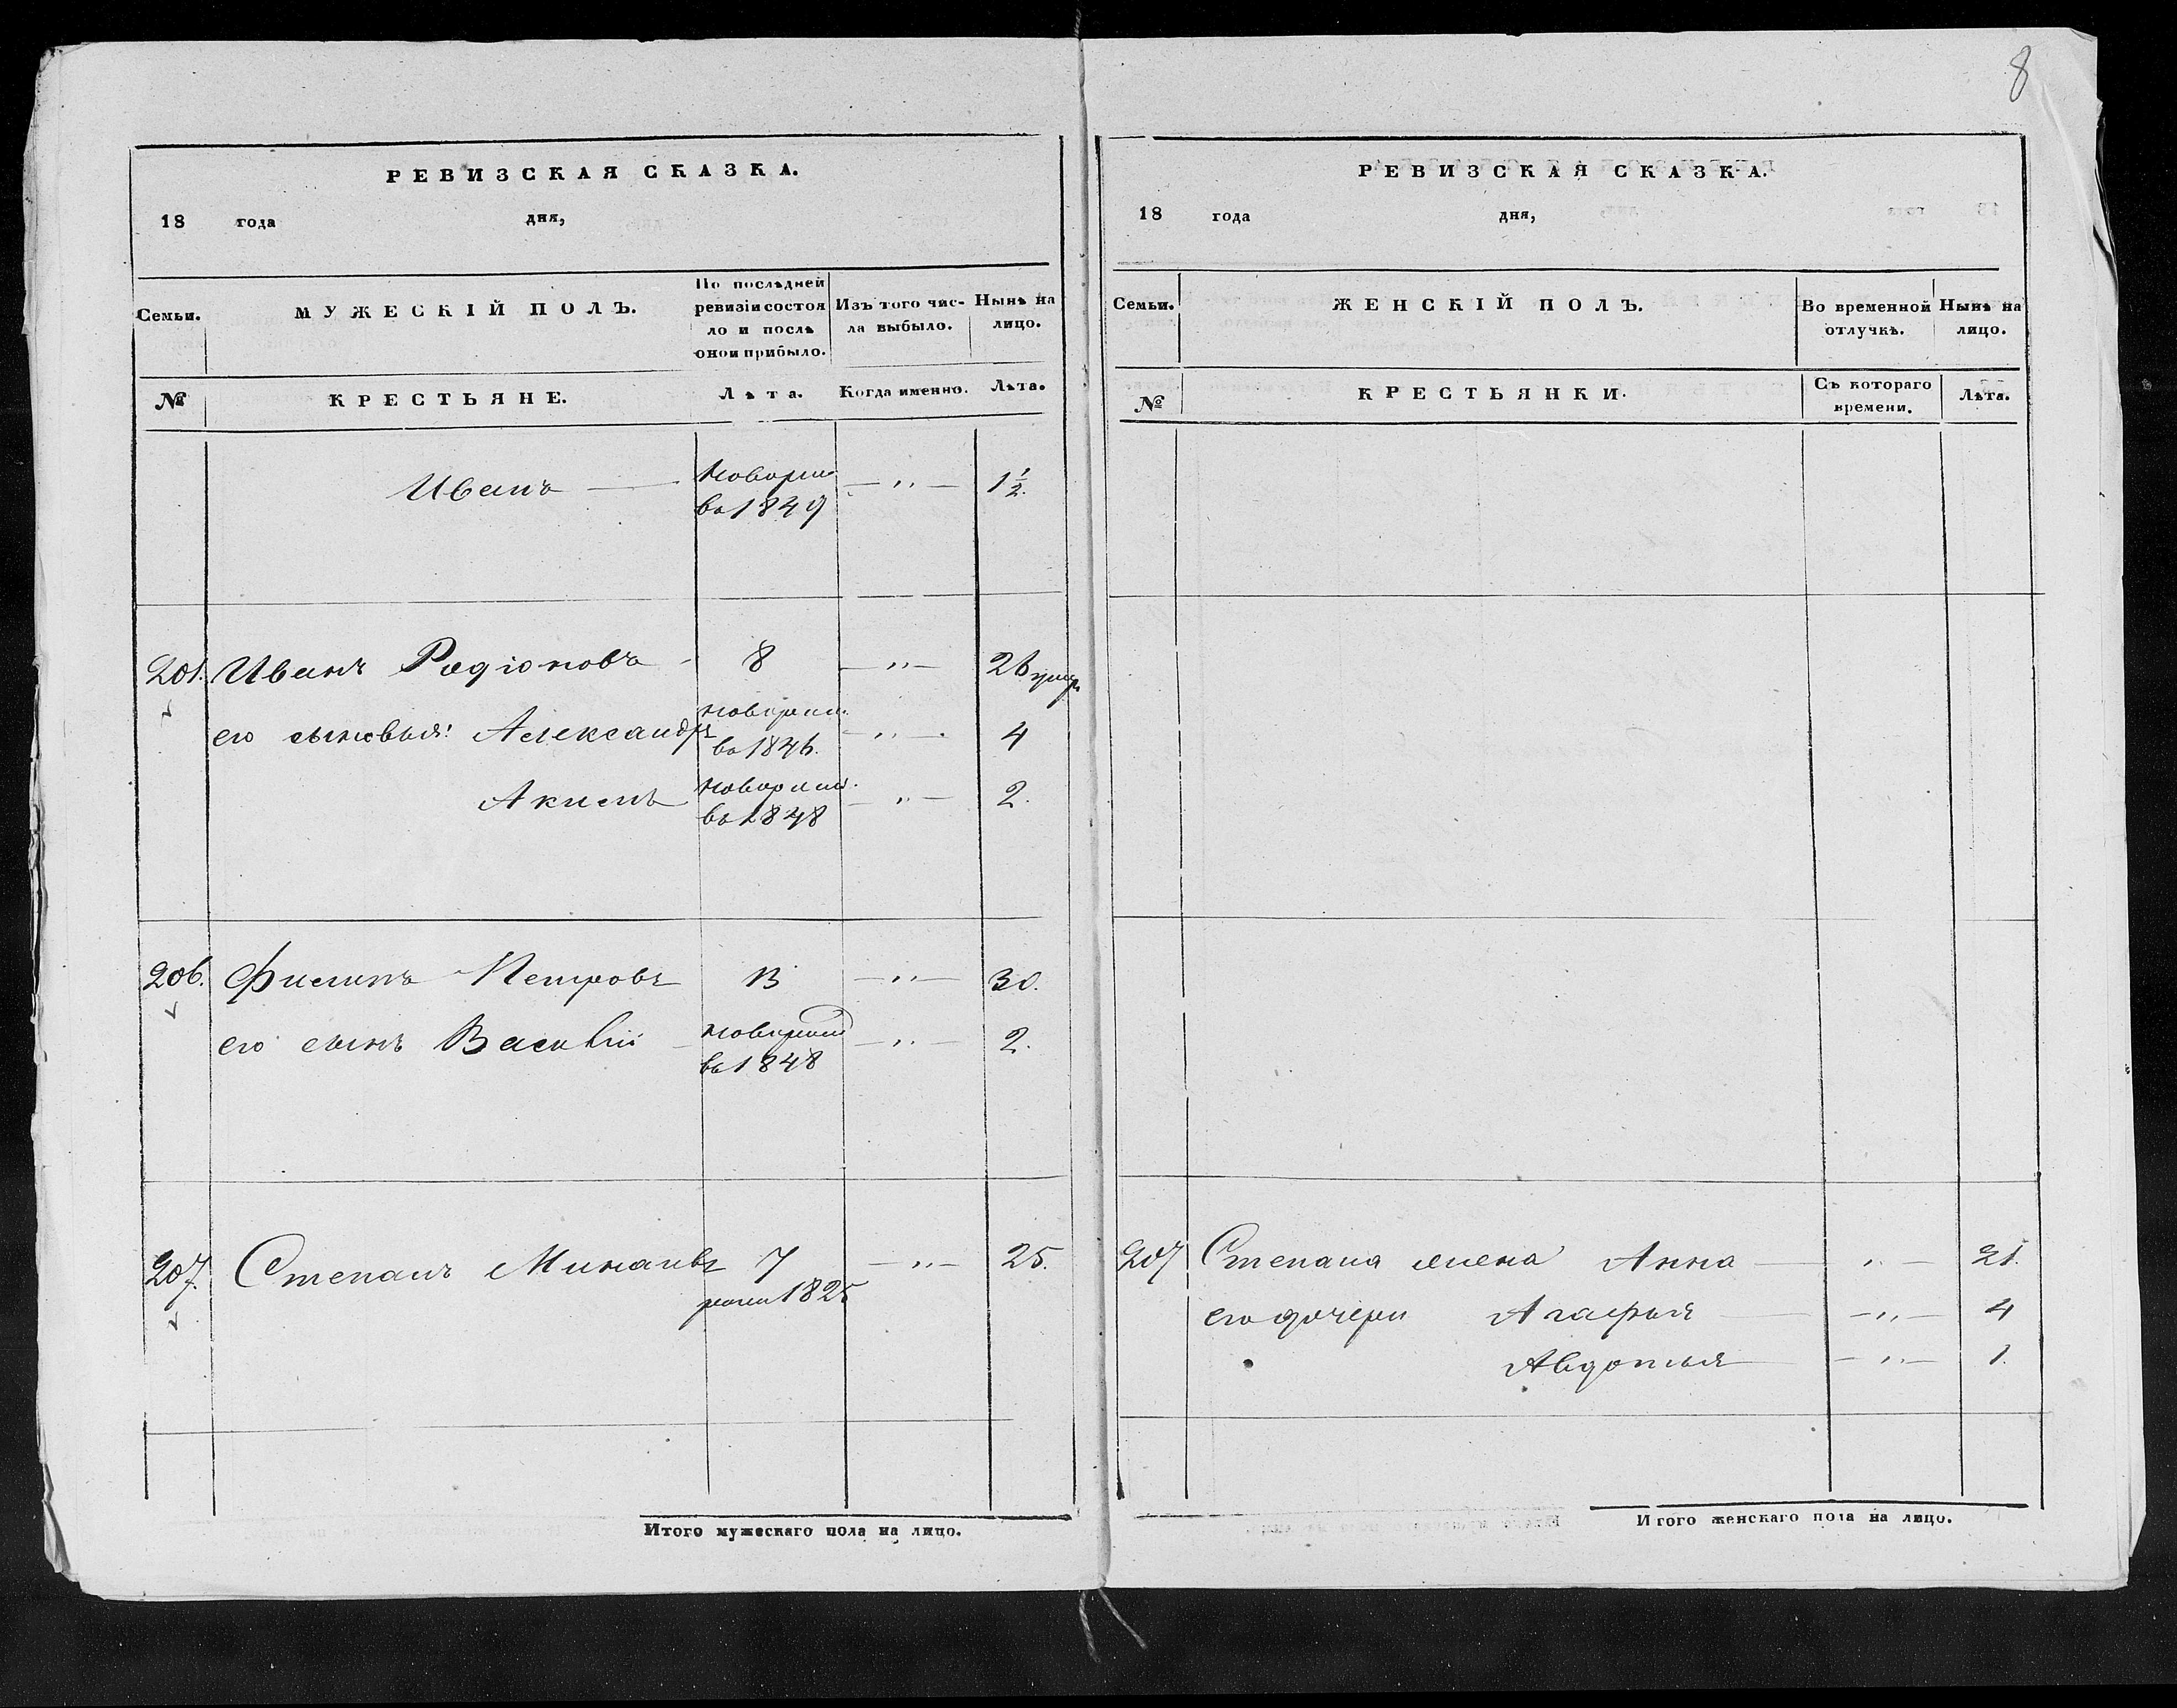 8
РЕВИЗСКАЯ СКАЗКА.
18 года дня,
Семьи.
МУЖЕСКІЙ ПОЛЪ.
По послѣдней
ревизіи состоя
ло и послѣ
оной прибыло.
Изъ того чис-
ла выбыло.
Нынѣ на
лицо.
№
КРЕСТЬЯНЕ.
Лѣта.
Когда именно.
Лѣта.
Иванъ
новорож
въ 1849
— " —
1 1/2.
Иванъ Родіоновъ
8
— " —
26
его сыновья: Александръ
новорож.
въ 1846.
— " —
4
Акимъ
новорож.
въ 1848
— " —
2.
206. Филипъ Петровъ
13
— " —
30.
его сынъ Василій
новорож
въ 1848
— " —
2.
207. Степанъ Минаивъ
7
1825
— " —
25.
Итого мужескаго пола на лицо.
РЕВИЗСКАЯ СКАЗКА.
18 года дня,
Семьи.
ЖЕНСКІЙ ПОЛЪ.
Во временной
отлучкѣ.
Нынѣ на
лицо.
№
КРЕСТЬЯНКИ.
Съ котораго
времени.
Лѣта.
207 Степана жена Анна — " — 21.
его дочери Агафья — " — 4
Авдотья — " — 1.
Итого женскаго пола на лицо.